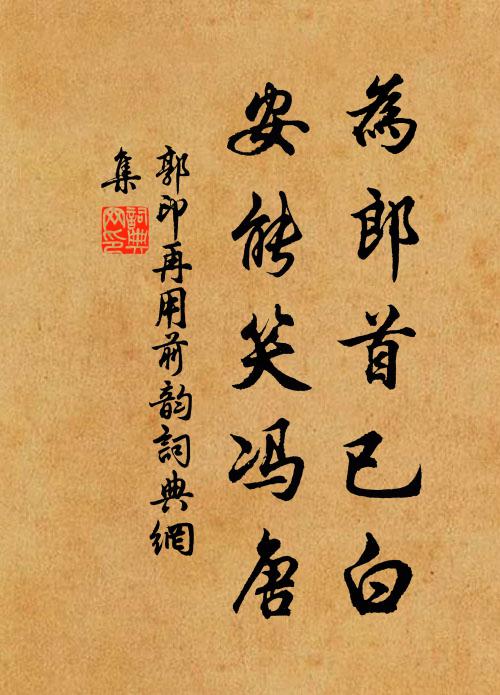 為郎首已白
安能笑冯唐
郭印再用前韵詞典網
集
詞典
网印